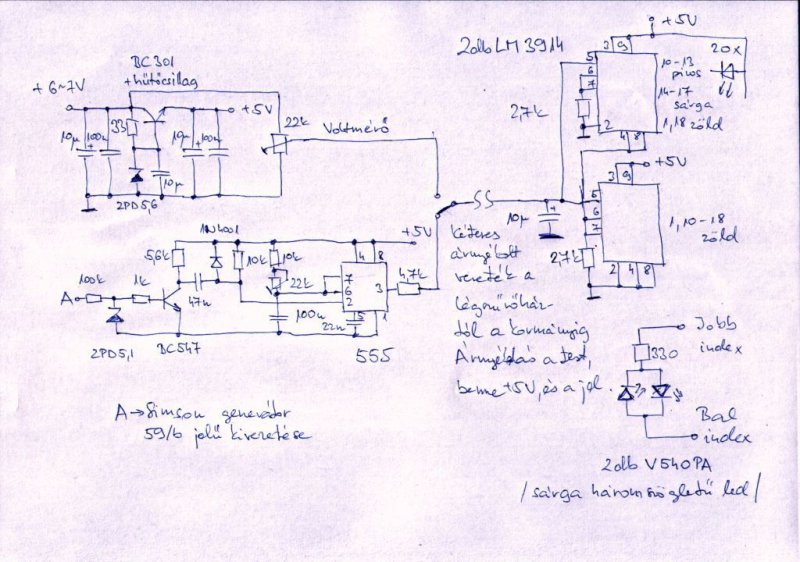 BC301
+hűtőcsillag
+6~7V
+5V
10µ
+
100n
33
10µ
+
100n
10µ
2PD5,6
22k
Voltmérő
2db LM3914
+5V
3
9
5
6
7
2
4
8
2,7k
20x
10-13
piros
14-17
sárga
1,18 zöld
+5V
3
9
5
6
7
2
4
8
2,7k
1,10-18
zöld
10µ
+
1N4001
+5V
5,6k
10k
10k
22k
47n
100k
1k
A
2PD5,1
BC547
100n
22n
4
8
7
6
2
3
5
1
555
4,7k
Kéteres
árnyékolt
vezeték a
légszűrőház-
tól a kormányig
Árnyékolás a test,
benne +5V, és a jel.
A→Simson generátor
59/b jelű kivezetése
Jobb
index
330
Bal
index
2db V540PA
/sárga háromszögletű led/